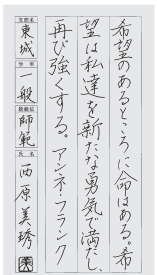 希望のあるところに命はある。希
望は私達を新たな勇気で満たし、
再び強くする。アンネ・フランク
支部名
東城
学年
一般
段級位
師範
氏名
西原美琇